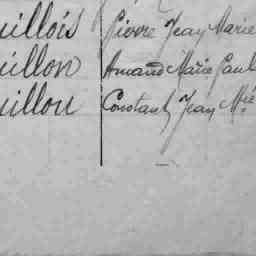 uillois Pierre Jean Marie
uillon Armand Marie Paul
uillou Constant Jean Mie